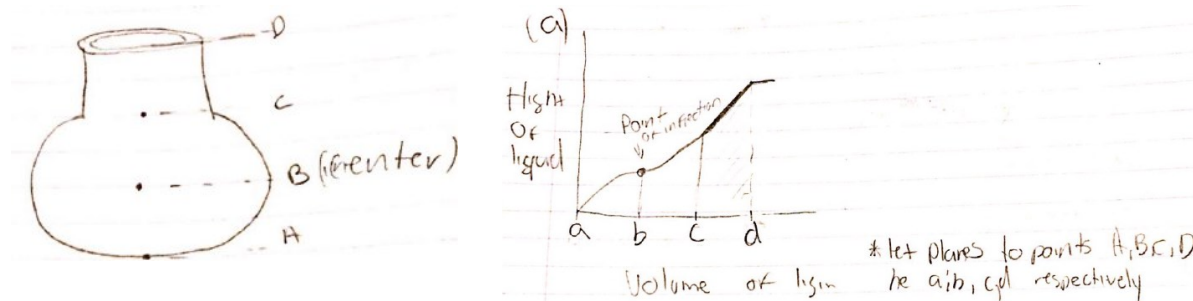 D
C
B (center)
A
(a)
Hight
Of
liquid
Point
of inflection
a b c d
Volume of
*let planes to points A,B,C,D
be a,b, c,d respectively